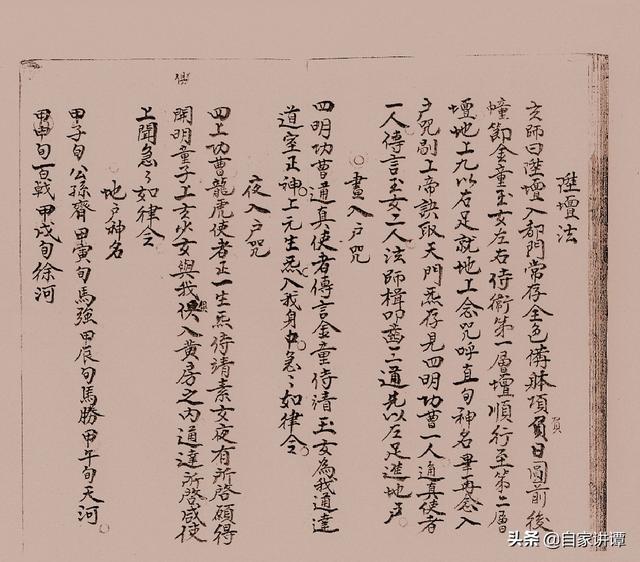 陞壇法
玄師曰陞壇入都門常存全色搆躰項負日圓前後
負
幢節金童玉女左右侍衛第一層壇順行至第二層
壇地上九以右足就地上念咒呼直旬神名畢再念入
戶咒剔上帝訣取天門炁存見四明功曹一人通真使者
一人傳言玉女二人法師楫叩齒三通先以左足進地戶
晝入戶咒
四明功曹通真使者傳言金童侍清玉女為我通達
道室正神上元生炁入我身中急〻如律令
夜入戶咒
四上功曹龍虎使者正一生炁侍靖素女夜有所啓碩得
開明童子上玄少女與我俱入黃房之內通達所啓咸使
上聞急〻如律令
地戶神名
甲子旬公孫齊甲寅旬馬強甲辰旬馬勝甲午旬天河
甲申旬百戰甲戌旬徐河
头条 @自家讲谭